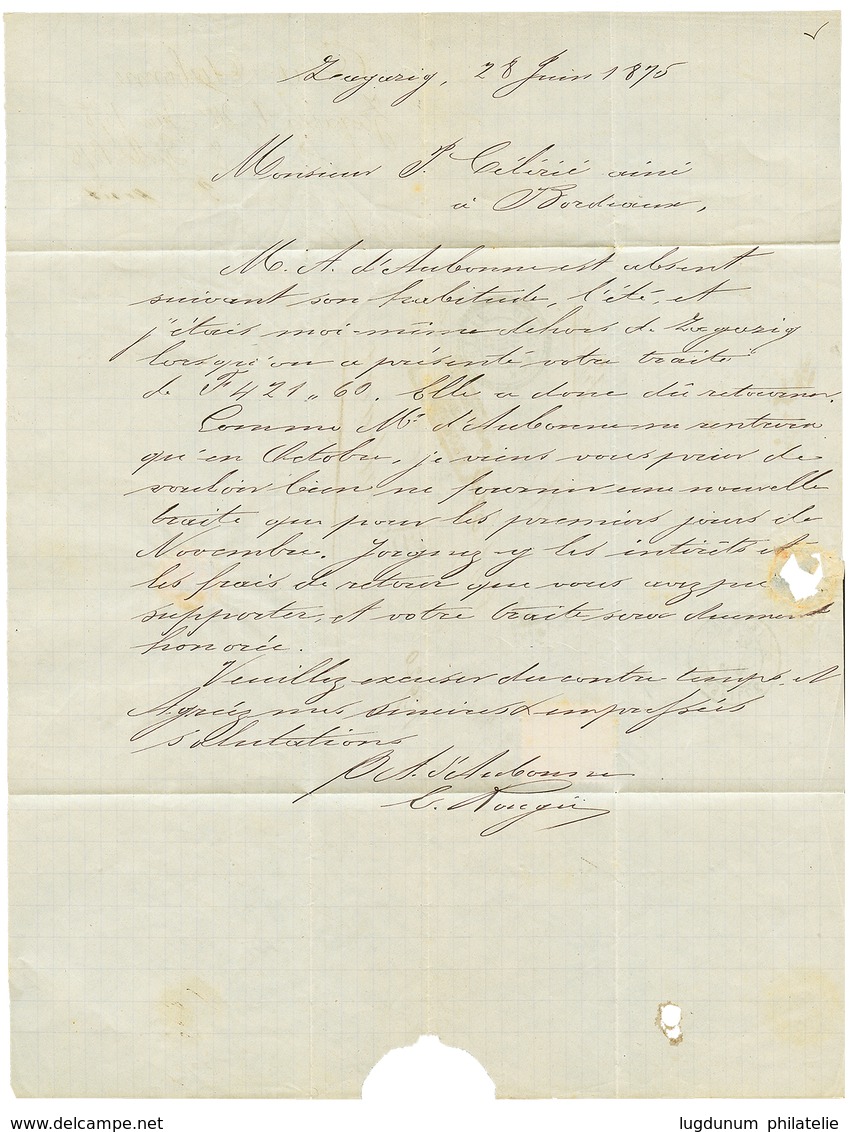 Zagazig, 28 Juin 1875
Monsieur P. Célérié ainé
à Bordeaux,
M. A. d'Aubonne est absent
suivant son habitude, l'été, et
j'étais moi-même dehors de Zagazig
lorsqu'on a présenté votre traite
de F 421 " 60. Elle a donc dû retourner.
Comme Mr d'Aubonne ne rentrera
qu'en Octobre, je viens vous prier de
vouloir bien ne fournir une nouvelle
traite que pour les premiers jours de
Novembre. Joignez-y les intérêts et
les frais de retour que vous avez pu
supporter, et votre traite sera dûment
honorée.
Veuillez excuser du contre temps, et
Agréez mes sincères & empressées
salutations
P A. d'Aubonne
C. Rougié
www.delcampe.net
lugdunum philatelie